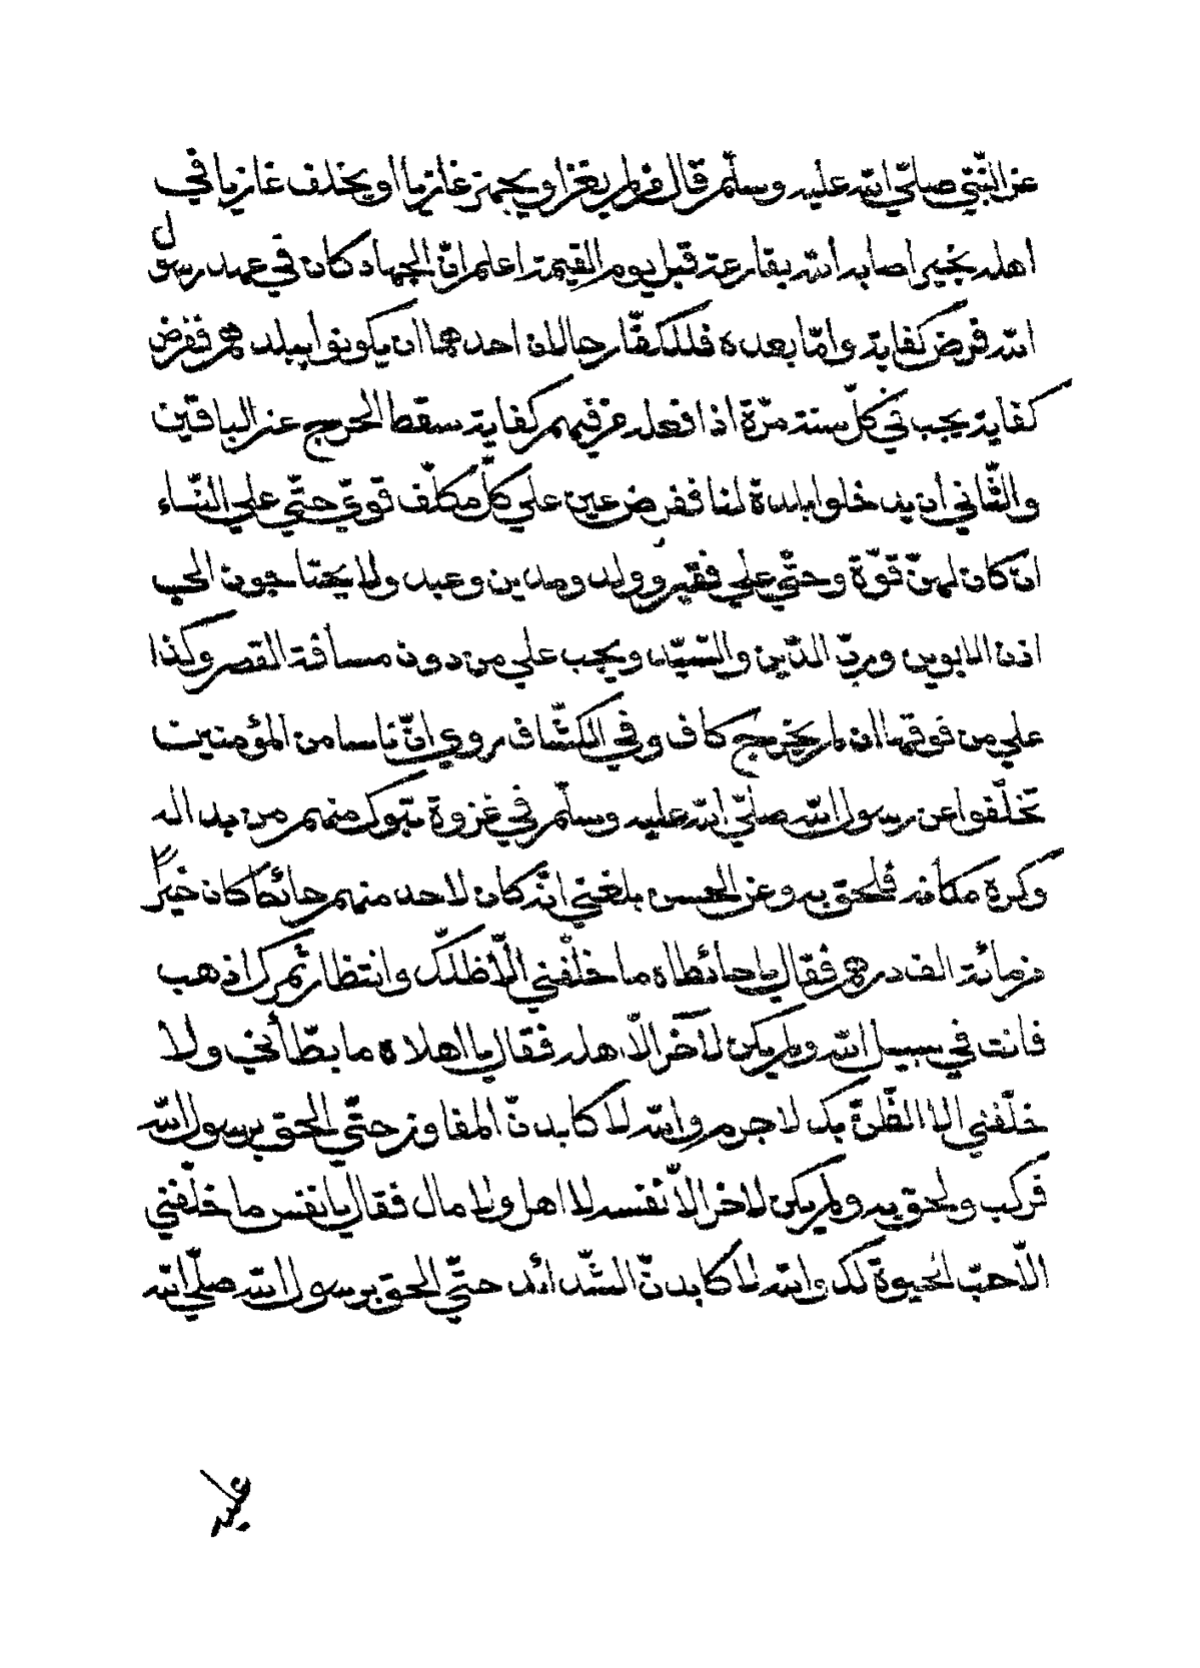 عن النّبيّ صلّي الله عليه وسلّم قال من لم يغز او يجهز غازيا أو يخلف غازيا في
أهله بخير اصابه الله بقارعة قبل يوم القيمة اعلم انّ الجهاد كان في عهد رسول
الله فرض كفاية وامّا بعده فللكفّار حالان احدهما ان يكونوا ببلدهم ففرض
كفاية يجب في كلّ سنة مرّة اذا فعله من فيهم كفاية سقط الحرج عن الباقين
والثّاني أن يدخلوا بلدة لنا ففرض عين علي كلّ مكلّف قويّ حتّي علي النّساء
ان كان لهنّ قوّة وحتّي علي فقير وولد ومدين وعبد ولا يحتاجون الي
اذن الابوين وربّ الدّين والسّيّد ويجب علي من دون مسافة القصر وكذا
علي من فوقها ان لم يخرج كاف وفي الكشّاف روي انّ ناسا من المؤمنين
تخلّفوا عن رسول الله صلّي الله عليه وسلّم في غزوة تبوك منهم من بدا له
وكره مكانه فلحق به وعن الحسن بلغني انّه كان لاحد منهم حائط كان خيرا
من مائة الف درهم فقال يا حائطاه ما خلّفني الّا ظلّك وانتظار ثمرك اذهب
فانت في سبيل الله ولم يكن لآخر الّا اهله فقال يا اهلاه ما بطّأني ولا
خلّفني الا الظّنّة بك لا جرم والله لاكابدنّ المفاوز حتّي الحق برسول الله
فركب ولحق به ولم يكن لاخر الّا نفسه لا اهل ولا مال فقال يا نفس ما خلّفني
الّا حبّ الحيوة لك والله لاكابدنّ الشّدائد حتّي الحق برسول الله صلّي الله
عليه